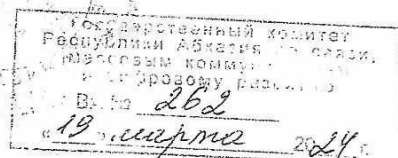 Государственный комитет
Республики Абхазия по связи,
массовым комму
и цифровому разви
Вх. № 262
«19» марта 2024 г.